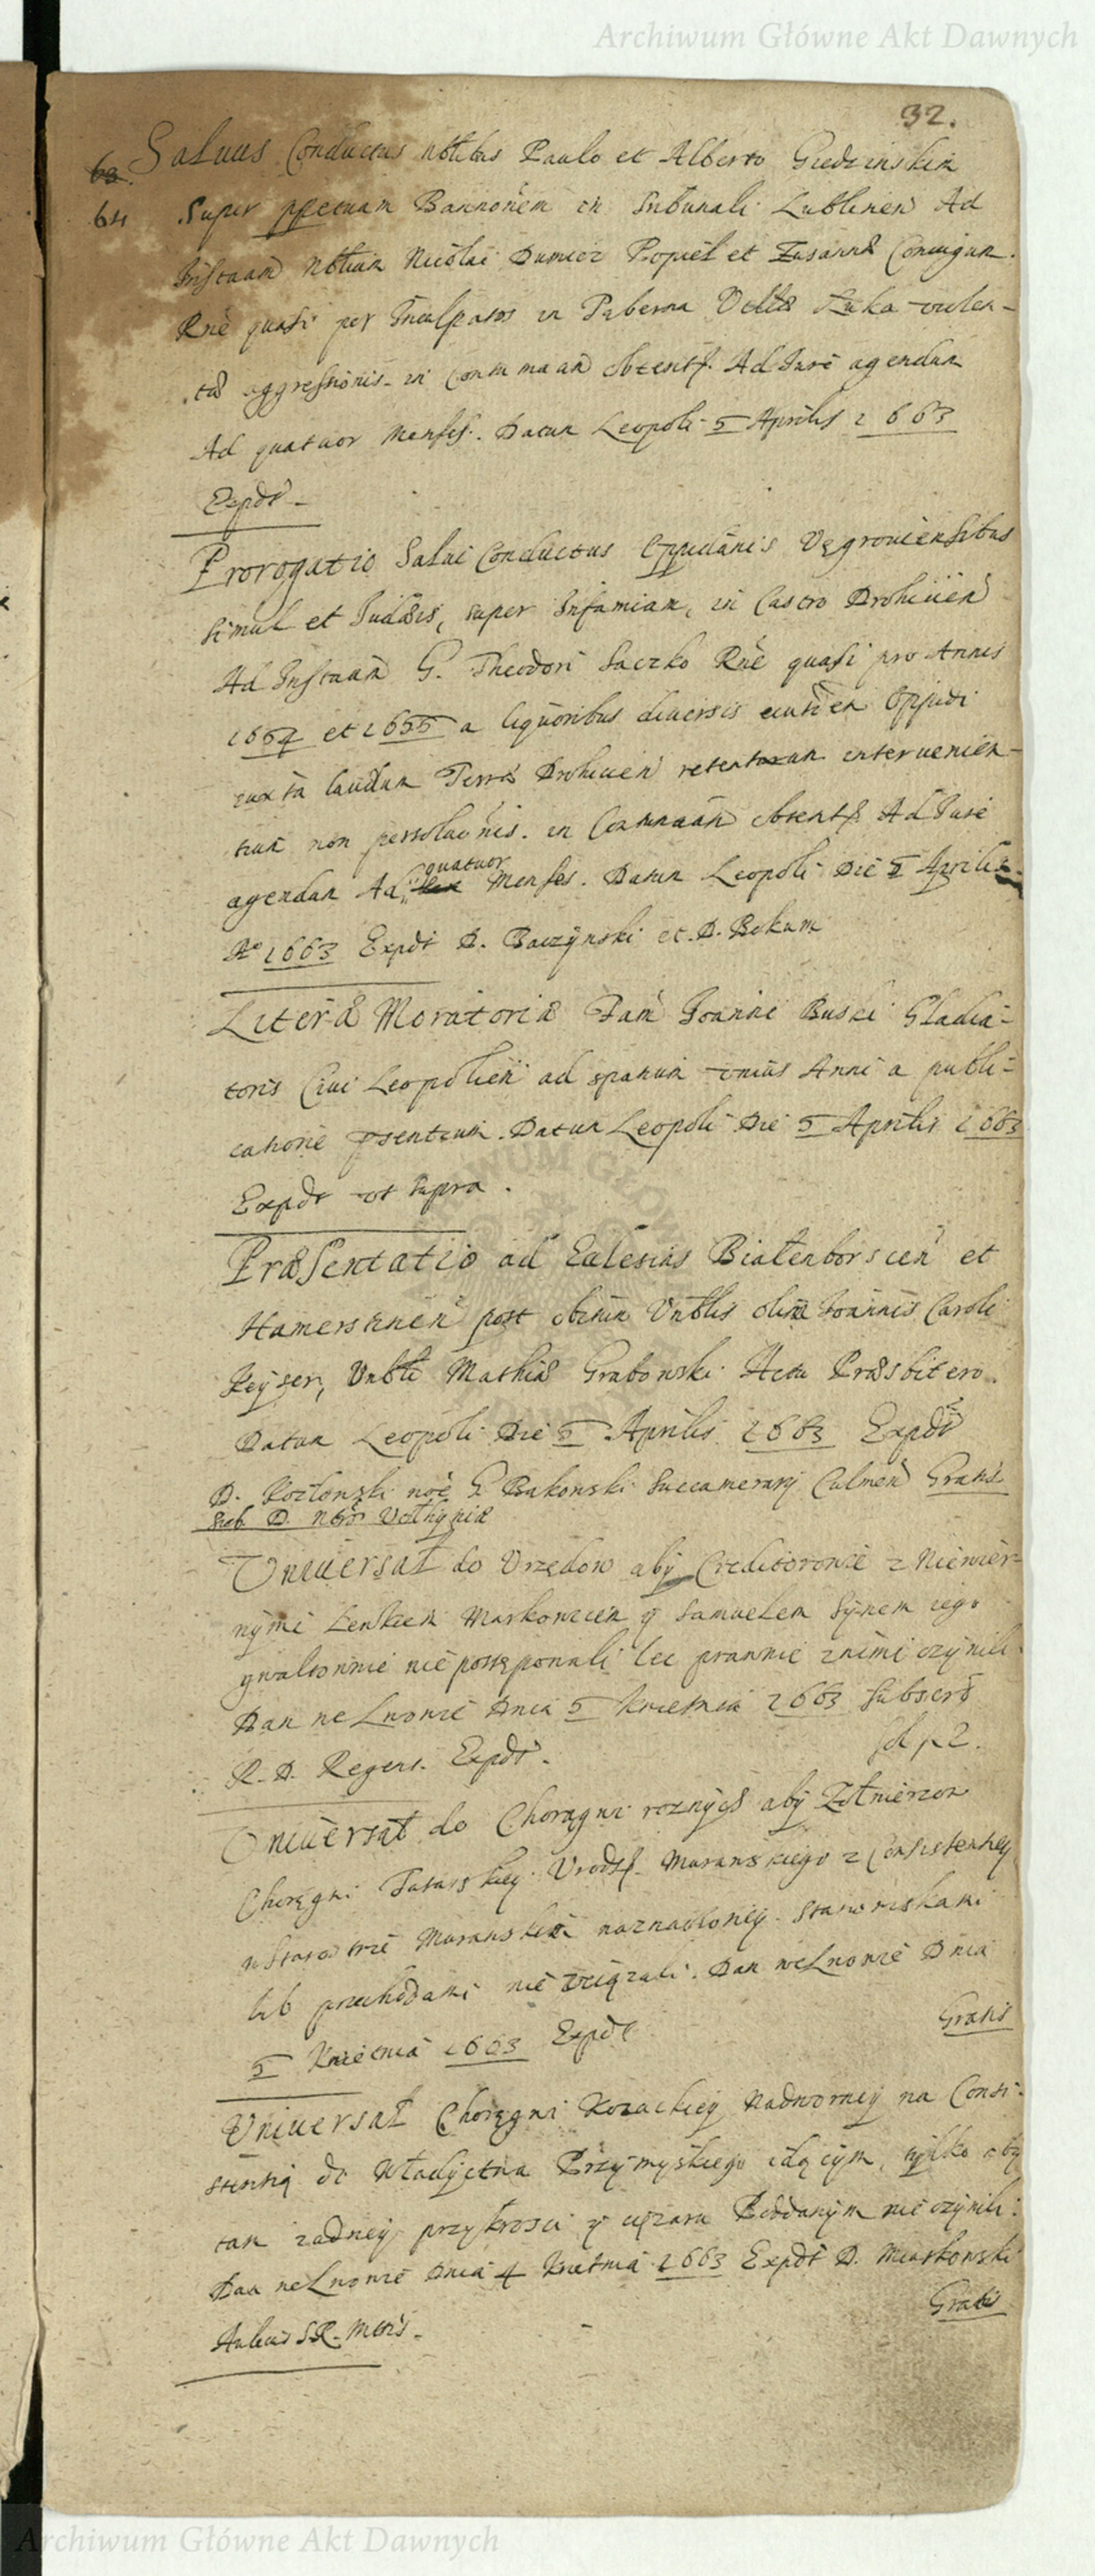 Archiwum Główne Akt Dawnych
32.
63.
Saluus Conductus nobilibus Paulo et Alberto Giedzinskim
64 super ppetuam Bannonem in Tribunali Lublinen Ad
Instaam Nblium Nicolai Popiel et Zusanna Coniugum.
Rne quasi per Inculpatos in Taberna Villa Luka violen-
ta aggressionis in Contumaam obtent. Ad Jure agendum
Ad quatuor Menses. Datum Leopoli 5 Aprilis 1663
Expdt
Prorogatio Salui Conductus Oppidanis Vęgrouiensibus
simul et Judæis, super Infamiam, in Castro Drohicien
Ad Instaam G. Theodori Saczko Rne quasi pro Annis
1654 et 1655 a liquoribus diuersis eiusdem Oppidi
iuxta laudum Terræ Drohicien retentorum interuenien-
tium non persolunis. in Contumaam obtent Ad Jure
agendum Ad quatuor Menses. Datum Leopoli Die 5 Aprilis
Ao 1663 Expdt D. Baczynski et D. Bokum
Literæ Moratoriæ Fam Joanni Buski Gladia-
toris Ciui Leopolien ad spatium vnius Anni a publi-
catione psentium. Datum Leopoli Die 5 Aprilis 1663
Expdt vt supra.
Præsentatio ad Eclesias Białenborscen et
Hamersztinen post obitum Vnblis olim Joannis Caroli
Keyser, Vnbli Mathiæ Grabowski Actu Præsbitero.
Datum Leopoli Die 5 Aprilis 1663 Expdt
D. Kozłowski noe G Bakowski Succamerarij Culmen Gratis
Sub D. Nri Volhyniæ
Vniuersał do Vrzędow aby Creditorowie z Niewier-
nymi Leybem Markowicem y Samuelem Synem iego
gwałtownie nie postęponali lec prawnie znimi czynili
Dan we Lwowie Dnia 5 Kwietnia 1663 Subscr
R. D. Regens. Expdt.
Vniuersał do Chorągwi roznych aby Zołnierzow
Chorągwi Tatarskiey Vrodz. Murawskiego z Consistentiey
w Starostwie naznaczoney Stanowiskami
lub przechodami nie Dan we Lwowie Dnia
5 Kwietnia 1663 Expdt
Gratis
Vniuersał Chorągwi Kozackiey Nadworney na Consi-
stentią do Władyctwa Przymyskiego idącym, tylko aby
tam zadney przykrosci y ciężaru Poddanym nie czynili.
Dan we Lwowie Dnia 4 Kwietnia 1663 Expdt D. Miaskowski
Gratis
Aulicus S.R. Mtis.
Archiwum Główne Akt Dawnych